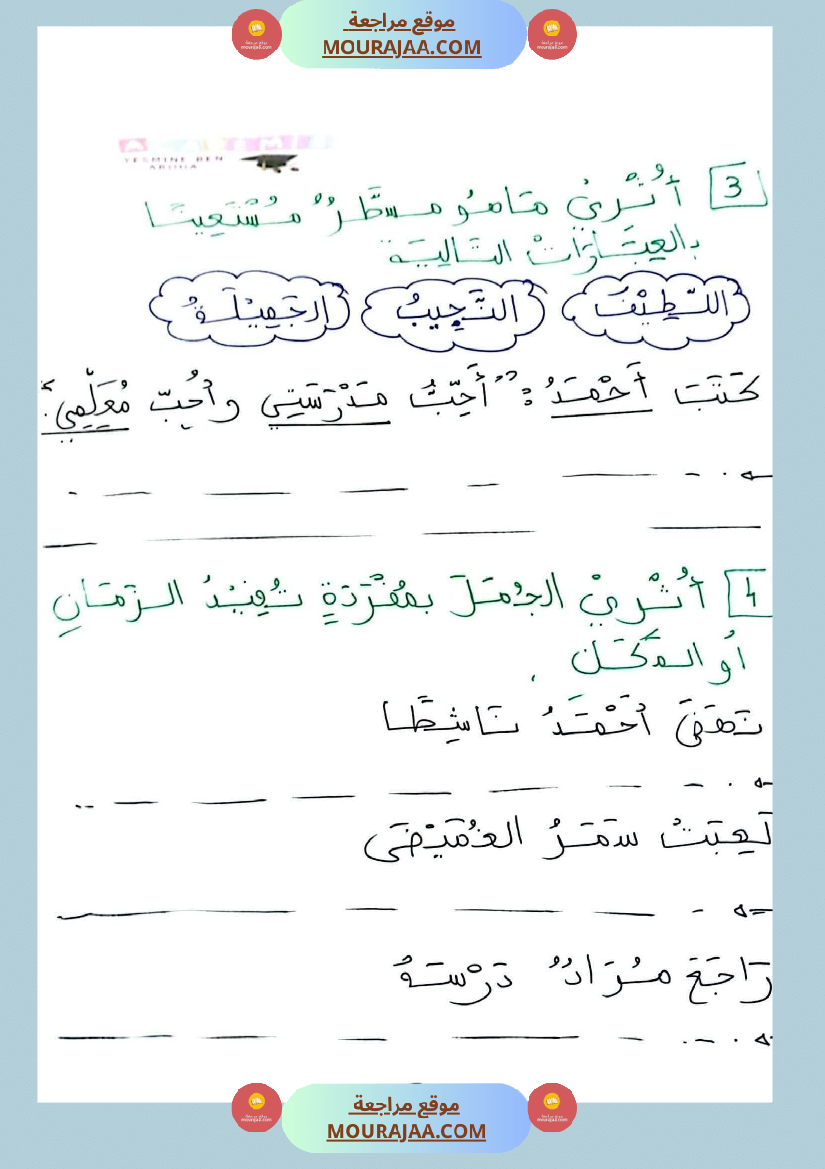 موقع مراجعة
MOURAJAA.COM
YESMINE BEN
3 أُثْرِيْ مَا هُو مسطَّرٌ مُسْتَعِينًا
بالعِبَارَاتْ التَالِيَة
اللَّطِيْفُ النَّجِيبُ الجَمِيْلَةُ
كَتَبَ أَحْمَدُ : "أُحِبُّ مَدْرَسَتِي وأُحُبّ مُعَلِّمِي".
4 أُثْرِيْ الجُمَلَ بمُفْرَدَةٍ تُفِيْدُ الزَمَانِ
أو المَكَان
نَهَضَ أَحْمَدُ نَاشِطًا
لَعِبَتْ سَمَرُ الغُمَيْضَى
رَاجَعَ مُرَادٌ دَرْسَهُ
موقع مراجعة
MOURAJAA.COM